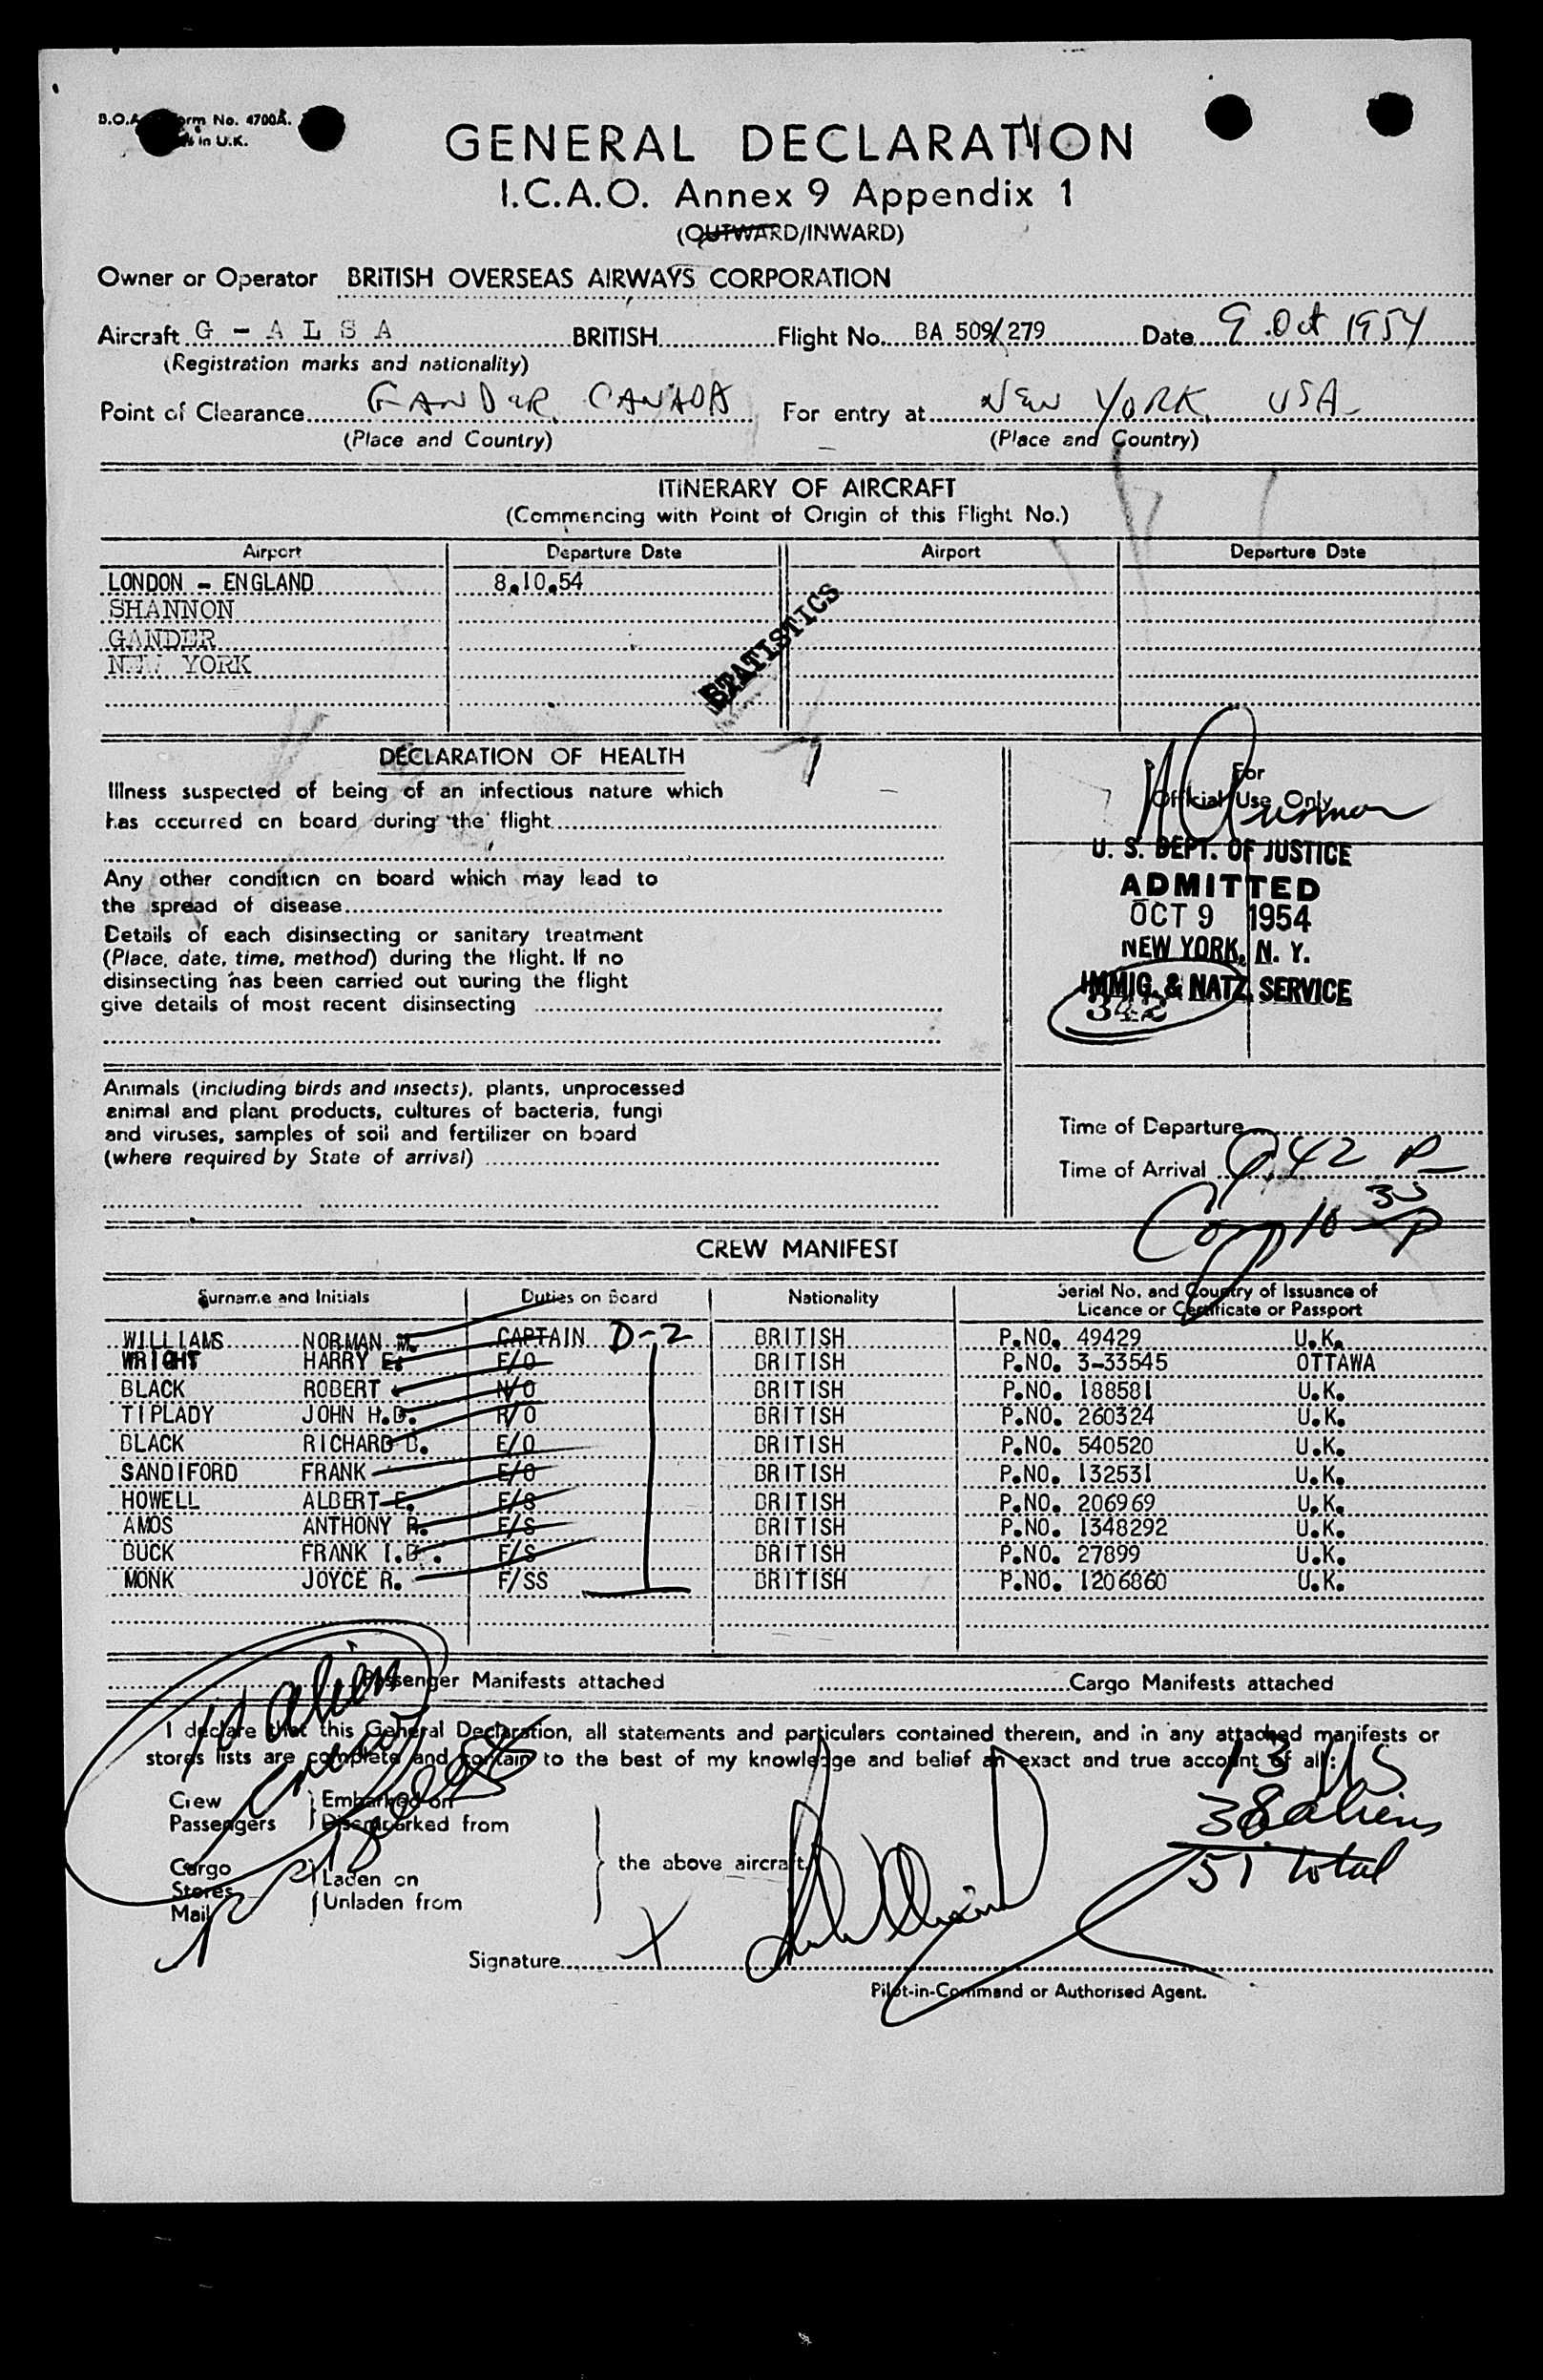 B.O.A. Form No. 4700A.
in U.K.
GENERAL DECLARATION
I.C.A.O. Annex 9 Appendix 1
(OUTWARD/INWARD)
Owner or Operator BRITISH OVERSEAS AIRWAYS CORPORATION
Aircraft G - A L S A BRITISH Flight No. BA 509/279 Date 9 Oct 1954
(Registration marks and nationality)
Point of Clearance GANDER, CANADA For entry at NEW YORK, USA
(Place and Country) (Place and Country)
ITINERARY OF AIRCRAFT
(Commencing with Point of Origin of this Flight No.)
Airport Departure Date Airport Departure Date
LONDON - ENGLAND 8.10.54
SHANNON
GANDER
NEW YORK
STATISTICS
DECLARATION OF HEALTH
Illness suspected of being of an infectious nature which
has occurred on board during the flight
Any other condition on board which may lead to
the spread of disease
Details of each disinsecting or sanitary treatment
(Place, date, time, method) during the flight. If no
disinsecting has been carried out during the flight
give details of most recent disinsecting
For
Official Use Only
U. S. DEPT. OF JUSTICE
ADMITTED
OCT 9 1954
NEW YORK, N. Y.
IMMIG. & NATZ. SERVICE
342
Animals (including birds and insects), plants, unprocessed
animal and plant products, cultures of bacteria, fungi
and viruses, samples of soil and fertilizer on board
(where required by State of arrival)
Time of Departure
Time of Arrival 9.42 P
Comp 10 35 P
CREW MANIFEST
Surname and Initials Duties on Board Nationality Serial No. and Country of Issuance of
Licence or Certificate or Passport
WILLIAMS NORMAN M. CAPTAIN D-2 BRITISH P.NO. 49429 U.K.
WRIGHT HARRY E. F/O BRITISH P.NO. 3-33545 OTTAWA
BLACK ROBERT N/O BRITISH P.NO. 188581 U.K.
TIPLADY JOHN H.D. R/O BRITISH P.NO. 260324 U.K.
BLACK RICHARD B. E/O BRITISH P.NO. 540520 U.K.
SANDIFORD FRANK E/O BRITISH P.NO. 132531 U.K.
HOWELL ALBERT E. F/S BRITISH P.NO. 206969 U.K.
AMOS ANTHONY R. F/S BRITISH P.NO. 1348292 U.K.
BUCK FRANK I.B. F/S BRITISH P.NO. 27899 U.K.
MONK JOYCE R. F/SS BRITISH P.NO. 1206860 U.K.
Passenger Manifests attached Cargo Manifests attached
10 alien
crew
I declare that this General Declaration, all statements and particulars contained therein, and in any attached manifests or
stores lists are complete and contain to the best of my knowledge and belief an exact and true account of all:
Crew Embarked on
Passengers Disembarked from
Cargo
Stores Laden on
Mail Unladen from
the above aircraft.
13 US
38 aliens
51 total
Signature X
Pilot-in-Command or Authorised Agent.